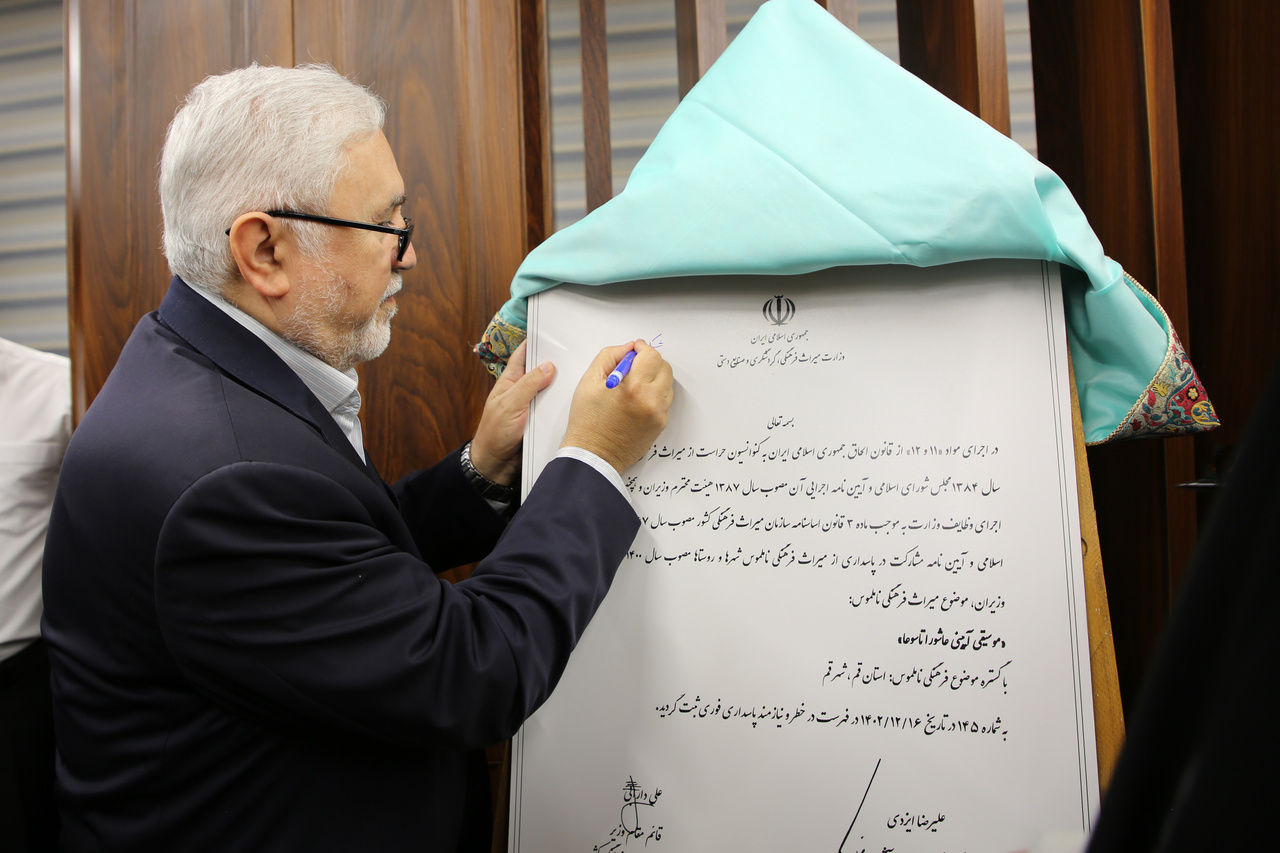 جمهوری اسلامی ایران
وزارت میراث فرهنگی، گردشگری و صنایع دستی
بسمه تعالی
در اجرای مواد «۱۱ و ۱۲» از قانون الحاق جمهوری اسلامی ایران به کنوانسیون حراست از میراث
سال ۱۳۸۴ مجلس شورای اسلامی و آیین نامه اجرایی آن مصوب سال ۱۳۸۷ هیئت محترم وزیران و
اجرای وظایف وزارت به موجب ماده ۳ قانون اساسنامه سازمان میراث فرهنگی کشور مصوب سال
اسلامی و آیین نامه مشارکت در پاسداری از میراث فرهنگی ناملموس شهرها و روستاها مصوب سال ۱۴۰۰
وزیران، موضوع میراث فرهنگی ناملموس:
«موسیقی آیینی عاشورا تاسوعا»
با گستره موضوع فرهنگی ناملموس: استان قم، شهر قم
به شماره ۱۴۵ در تاریخ ۱۴۰۲/۱۲/۱۶ در فهرست در خطر و نیازمند پاسداری فوری ثبت گردید.
علیرضا ایزدی
علی دارابی
قائم مقام وزیر